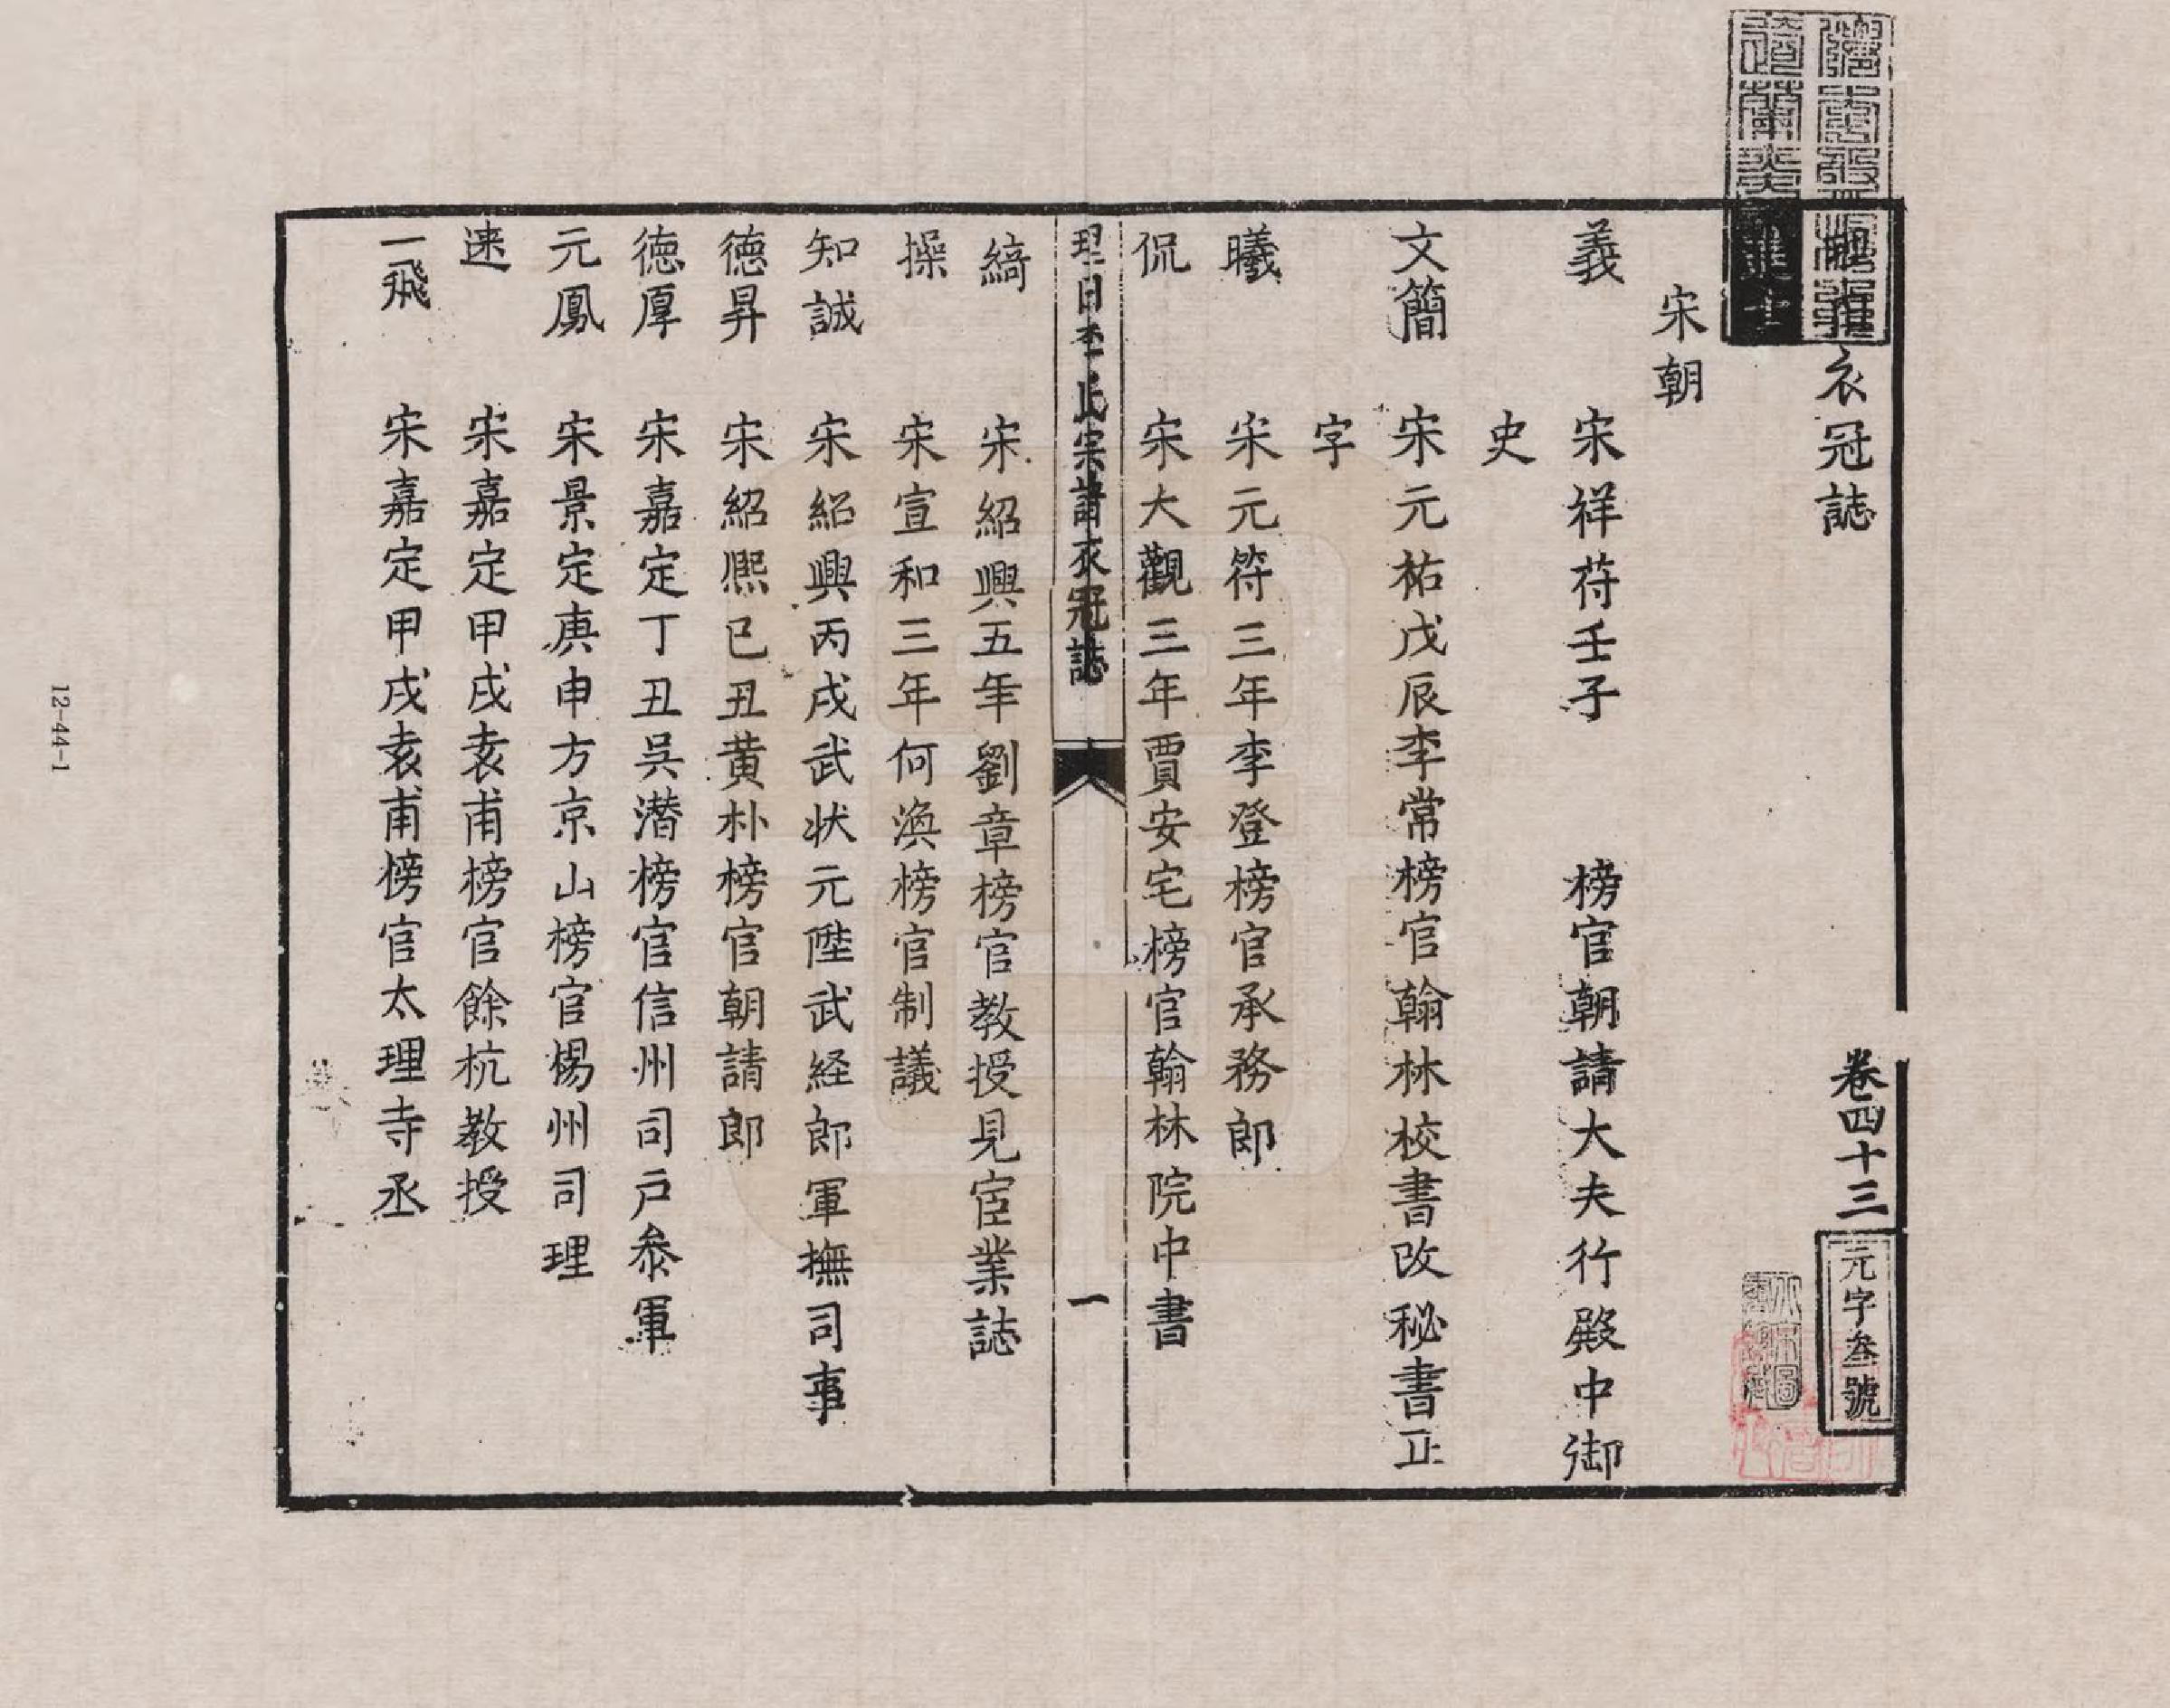 衣冠誌
卷四十三
元字叁號
進士
宋朝
義 宋祥苻壬子 榜官朝請大夫行殿中御
史
文簡 宋元祐戊辰李常榜官翰林校書改秘書正
字
曦 宋元符三年李登榜官承務郎
侃 宋大觀三年賈安宅榜官翰林院中書
理田李氏宗譜衣冠誌
一
綺 宋紹興五年劉章榜官教授見宦業誌
操 宋宣和三年何渙榜官制議
知誠 宋紹興丙戌武状元陞武経郎軍撫司事
德昇 宋紹熈已丑黄朴榜官朝請郎
德厚 宋嘉定丁丑吳潛榜官信州司戸叅軍
元鳳 宋景定庚申方京山榜官楊州司理
速 宋嘉定甲戌袁甫榜官餘杭教授
一飛 宋嘉定甲戌袁甫榜官太理寺丞
12-44-1